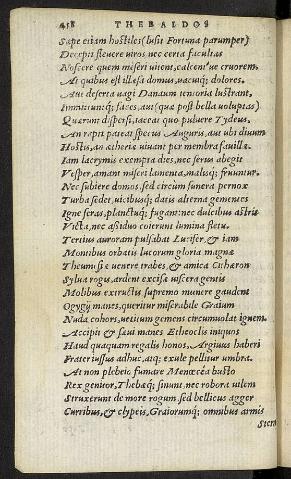 418 THEBAIDOS
Sæpe etiam hostiles (lusit Fortuna parumper)
Decepti fleuere uiros, nec certa facultas
Noscere quem miseri uitent, calcent'ue cruorem.
At quibus est illæsa domus, uacuiq; dolores,
Aut deserta uagi Danaum tentoria lustrant,
Immittuntq; faces, aut (quæ post bella uoluptas)
Quærunt dispersi, iaceat quo puluere Tydeus,
An rapti pateat specus Auguris, aut ubi diuum
Hostis, an ætheriæ uiuant per membra fauillæ.
Iam lacrymis exempta dies, nec serus abegit
Vesper, amant miseri lamenta, malisq; fruuntur.
Nec subiere domos, sed circum funera pernox
Turba sedet, uicibusq; datis alterna gementes
Igne feras, planctuq; fugant: nec dulcibus astris
Victa, nec assiduo coierunt lumina fletu.
Tertius auroram pulsabat Lucifer, & iam
Montibus orbatis lucorum gloria magnæ
Theumesiæ uenere trabes, & amica Cithæron
Sylua rogis, ardent excisæ uiscera gentis
Molibus extructis supremo munere gaudent
Ogygij manes, queritur miserabile Graium
Nuda cohors, uetitum gemens circumuolat ignem.
Accipit & sæui manes Etheoclis iniquos
Haud quaquam regalis honos, Argiuus haberi
Frater iussus adhuc, atq; exule pellitur umbra.
At non plebeio fumare Menœcea busto
Rex genitor, Thebæq; sinunt, nec robora uilem
Struxerunt de more rogum sed bellicus agger
Curribus, & clypeis, Graiorumq; omnibus armis